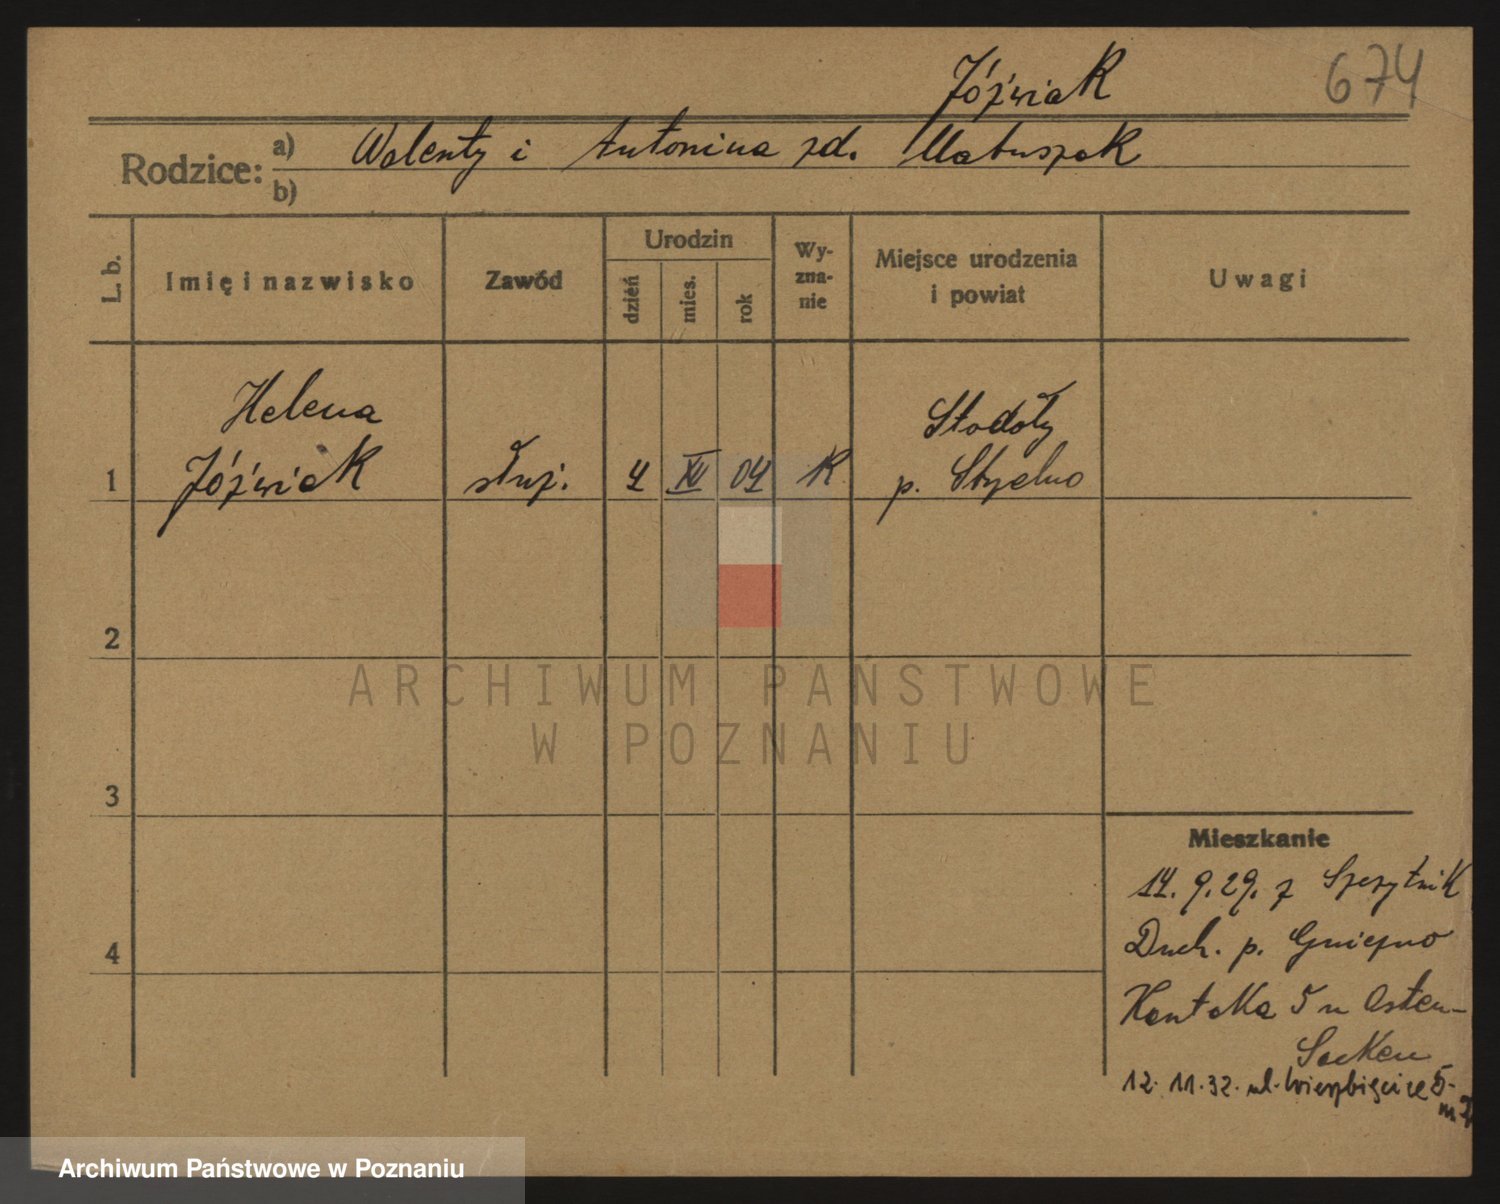 Jóźwiak
674
Rodzice: a) Walenty i Antonina zd. Matuszak
b)
L. b.
Imię i nazwisko
Zawód
Urodzin
dzień
mies.
rok
Wy-
zna-
nie
Miejsce urodzenia
i powiat
Uwagi
Helena
Jóźwiak
1
służ.
4
XII
04
K
Stodoły
p. Strzelno
2
ARCHIWUM PAŃSTWOWE
W POZNANIU
3
4
Mieszkanie
14. 9. 29. z Szczytnik
Duch. p. Gniezno
Kantaka 5 u Osten-
Sacken
12. 11. 32. ul. Wierzbięcice 5
Archiwum Państwowe w Poznaniu